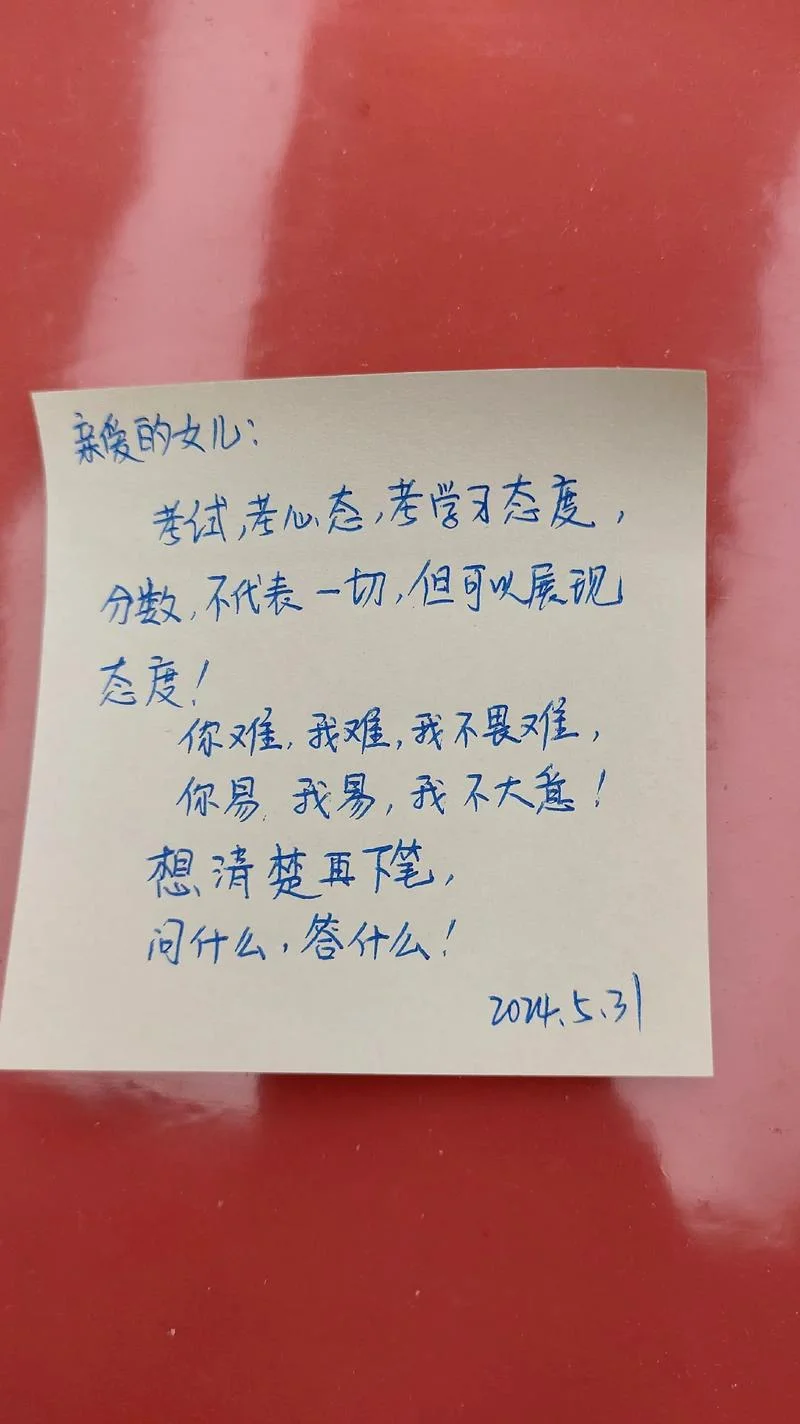 亲爱的女儿:
考试,考心态,考学习态度,
分数,不代表一切,但可以展现
态度!
你难,我难,我不畏难,
你易,我易,我不大意!
想清楚再下笔,
问什么,答什么!
2024.5.31